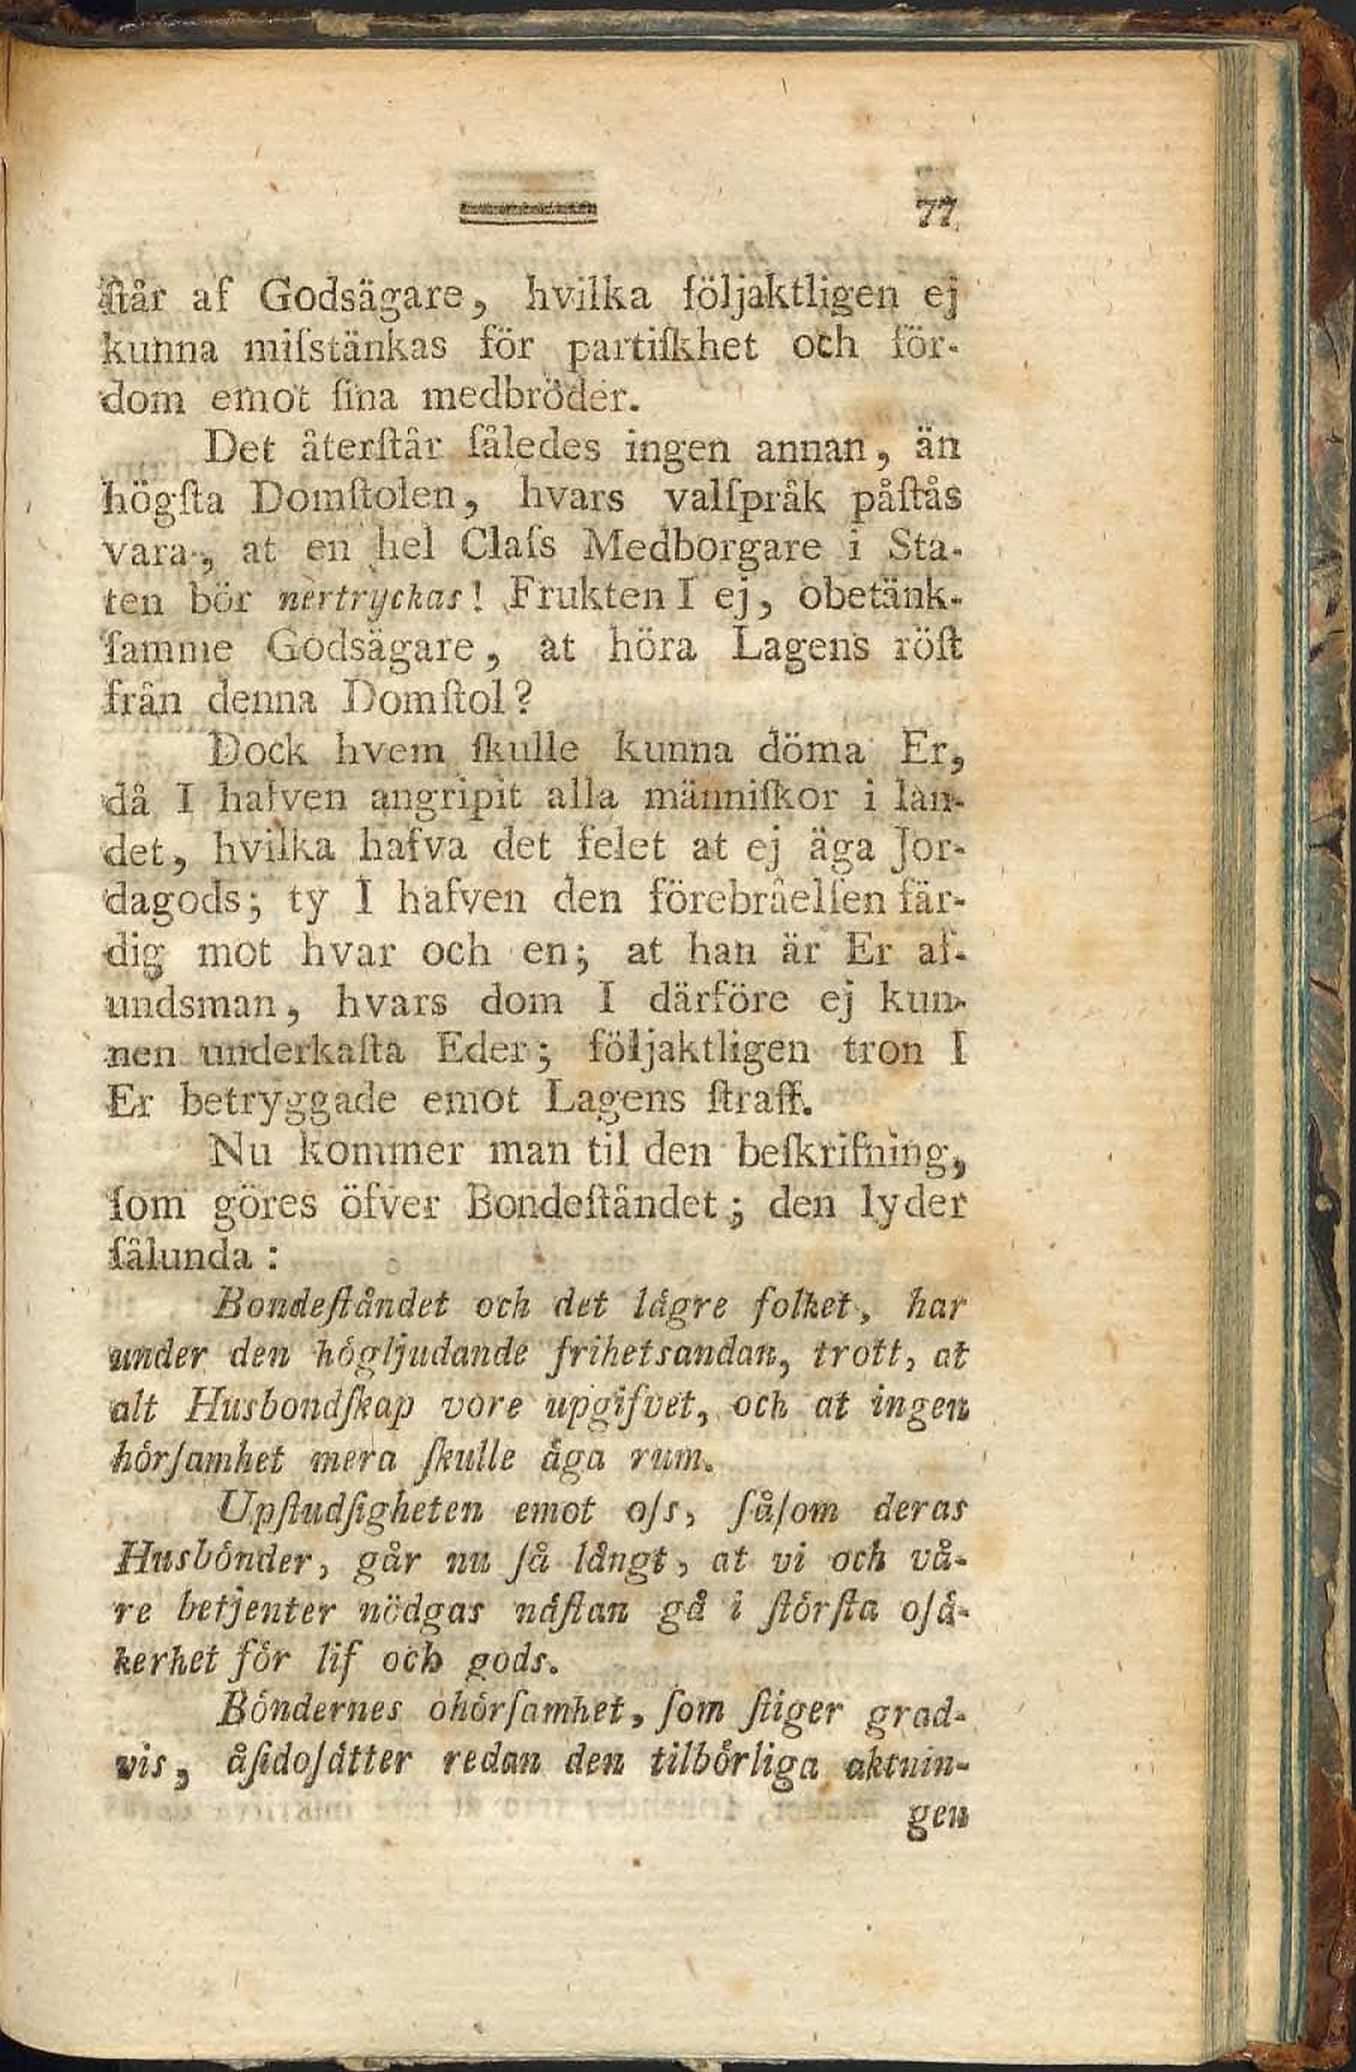 77
ſtår af Godsägare, hvilka följaktligen ej
kunna miſstänkas för partiſkhet och för-
dom emot ſina medbröder.
Det återſtår ſåledes ingen annan, än
högſta Domſtolen, hvars valſpråk påſtås
vara, at en hel Claſs Medborgare i Sta-
ten bör nertryckas! Frukten I ej, obetänk-
ſamme Godsägare, at höra Lagens röſt
från denna Domſtol?
Dock hvem ſkulle kunna döma Er,
då I hafven angripit alla människor i lan-
det, hvilka hafva det felet at ej äga Jor-
dagods; ty I hafven den förebråelſen fär-
dig mot hvar och en; at han är Er af-
undsman, hvars dom I därföre ej kun-
nen underkaſta Eder; följaktligen tron I
Er betryggade emot Lagens ſtraff.
Nu kommer man til den beſkrifning,
ſom göres öfver Bondeſtåndet; den lyder
ſålunda:
Bondeſtåndet och det lägre folket, har
under den högljudande frihetsandan, trott, at
alt Husbondſkap vore upgifvet, och at ingen
hörſamhet mera ſkulle äga rum.
Upſtudſigheten emot oſs, ſåſom deras
Husbönder, går nu ſå långt, at vi och vå-
re betjenter nödgas näſtan gå i ſtörſta oſä-
kerhet för lif och gods.
Böndernes ohörſamhet, ſom ſtiger grad-
vis, åſidoſätter redan den tilbörliga aktnin-
gen